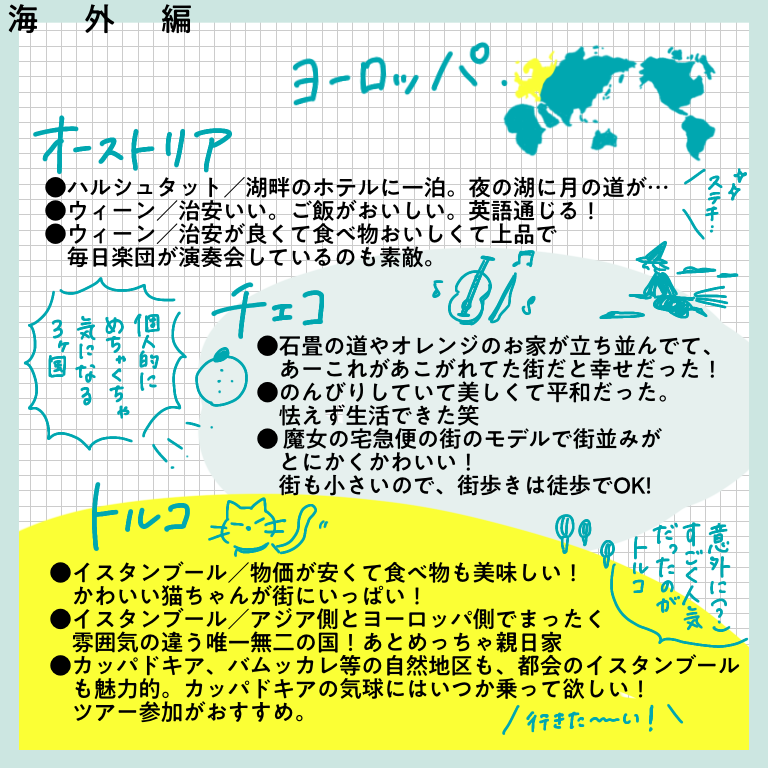 海外編
ヨーロッパ
オーストリア
●ハルシュタット／湖畔のホテルに一泊。夜の湖に月の道が…
●ウィーン／治安いい。ご飯がおいしい。英語通じる！
●ウィーン／治安が良くて食べ物おいしくて上品で
毎日楽団が演奏会しているのも素敵。
ステキ…
個人的に
めちゃくちゃ
気になる
3ヶ国
チェコ
●石畳の道やオレンジのお家が立ち並んでて、
あーこれがあこがれてた街だと幸せだった！
●のんびりしていて美しくて平和だった。
怯えず生活できた笑
●魔女の宅急便の街のモデルで街並みが
とにかくかわいい！
街も小さいので、街歩きは徒歩でOK!
トルコ
意外に(?)
すごく人気
だったのが
トルコ
●イスタンブール／物価が安くて食べ物も美味しい！
かわいい猫ちゃんが街にいっぱい！
●イスタンブール／アジア側とヨーロッパ側でまったく
雰囲気の違う唯一無二の国！あとめっちゃ親日家
●カッパドキア、バムッカレ等の自然地区も、都会のイスタンブール
も魅力的。カッパドキアの気球にはいつか乗って欲しい！
ツアー参加がおすすめ。
行きた〜〜い！